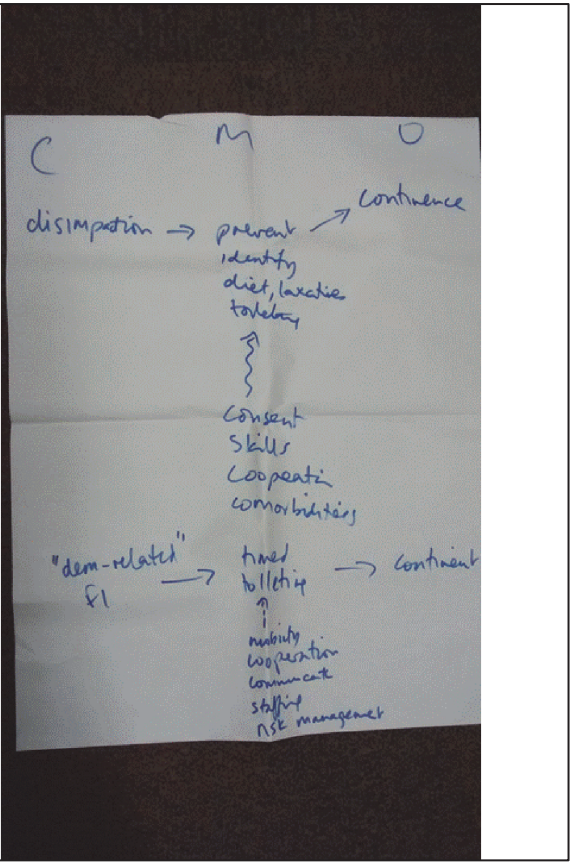 C M O
disimpation → prevent → continence
identify
diet, laxatives
toileting
consent
skills
cooperatin
comorbidities
"dem-related" FI → timed toileting → continent
mobility
cooperation
communicate
staffing
risk management